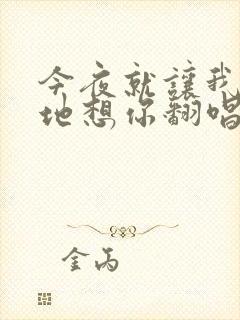 今夜就讓我
地想你翻唱
金丙